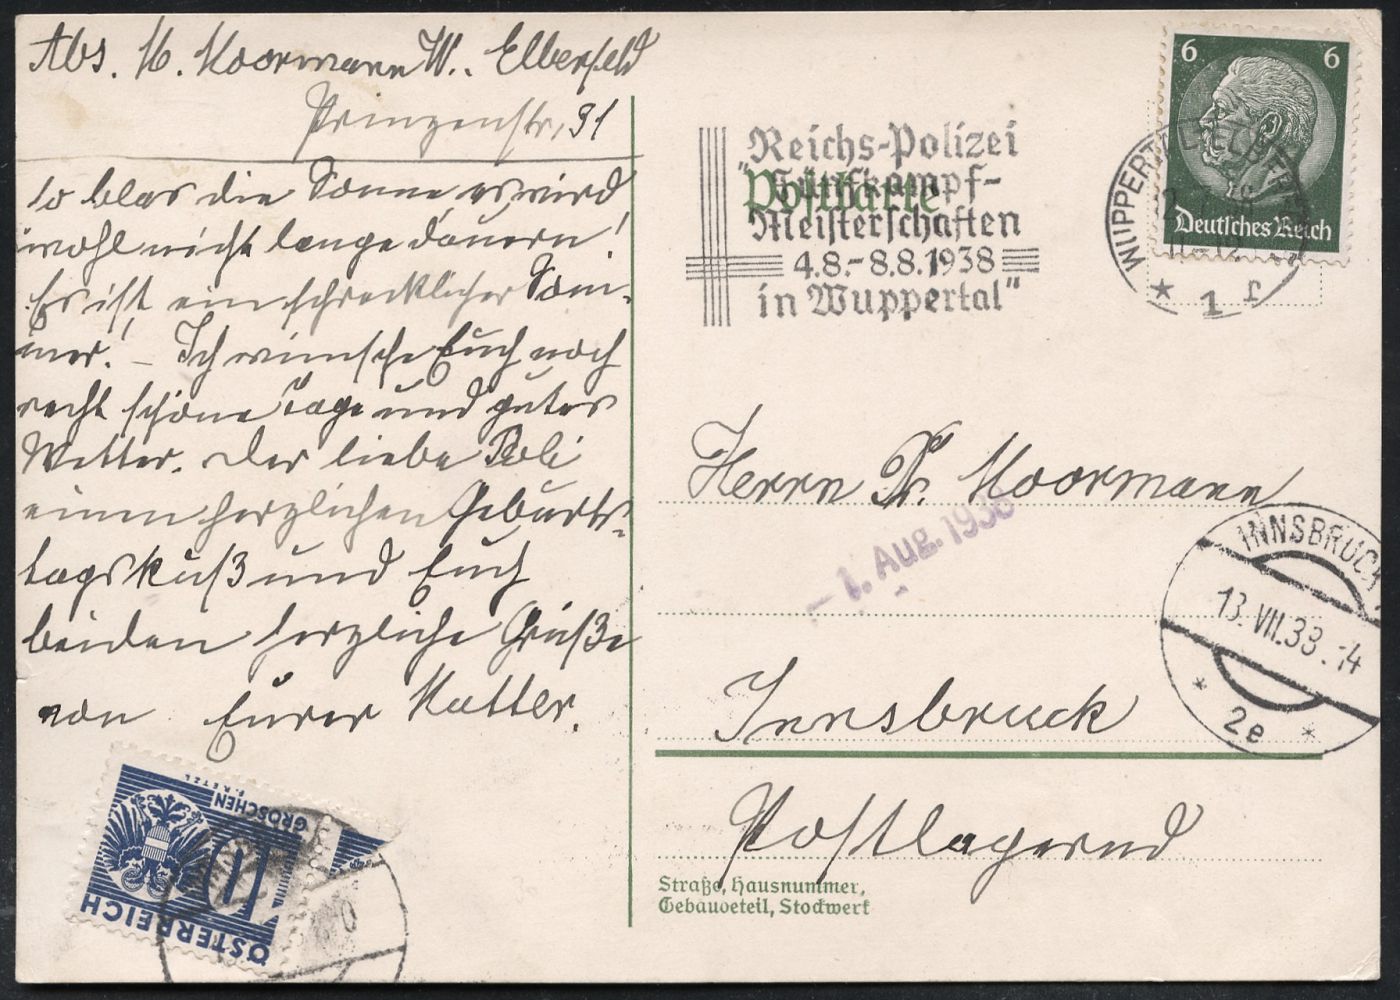 Abs. M. Moormann W.. Elberfeld
Prinzenstr. 91
so blas die Sonne es wird
wohl nicht lange dauern!
Es ist ein schrecklicher Som-
mer! – Ich wünsche Euch noch
recht schöne Tage und gutes
Wetter. Der liebe
einen herzlichen Geburts-
tagskuß und Euch
beiden herzliche Grüße
von Eurer Mutter.
Reichs-Polizei
"Fünfkampf-
Postkarte
Meisterschaften
4.8.-8.8.1938
in Wuppertal"
6 6
Deutsches Reich
WUPPERTAL-ELBERFELD
* 1 f
Herrn Dr. Moormann
- 1. Aug. 1938
INNSBRUCK
13.VII.38.14
* 2e *
Innsbruck
Postlagernd
Straße, Hausnummer,
Gebäudeteil, Stockwerk
GROSCHEN
ÖSTERREICH